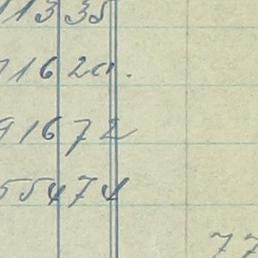 11335
71620.
91672
55474
77